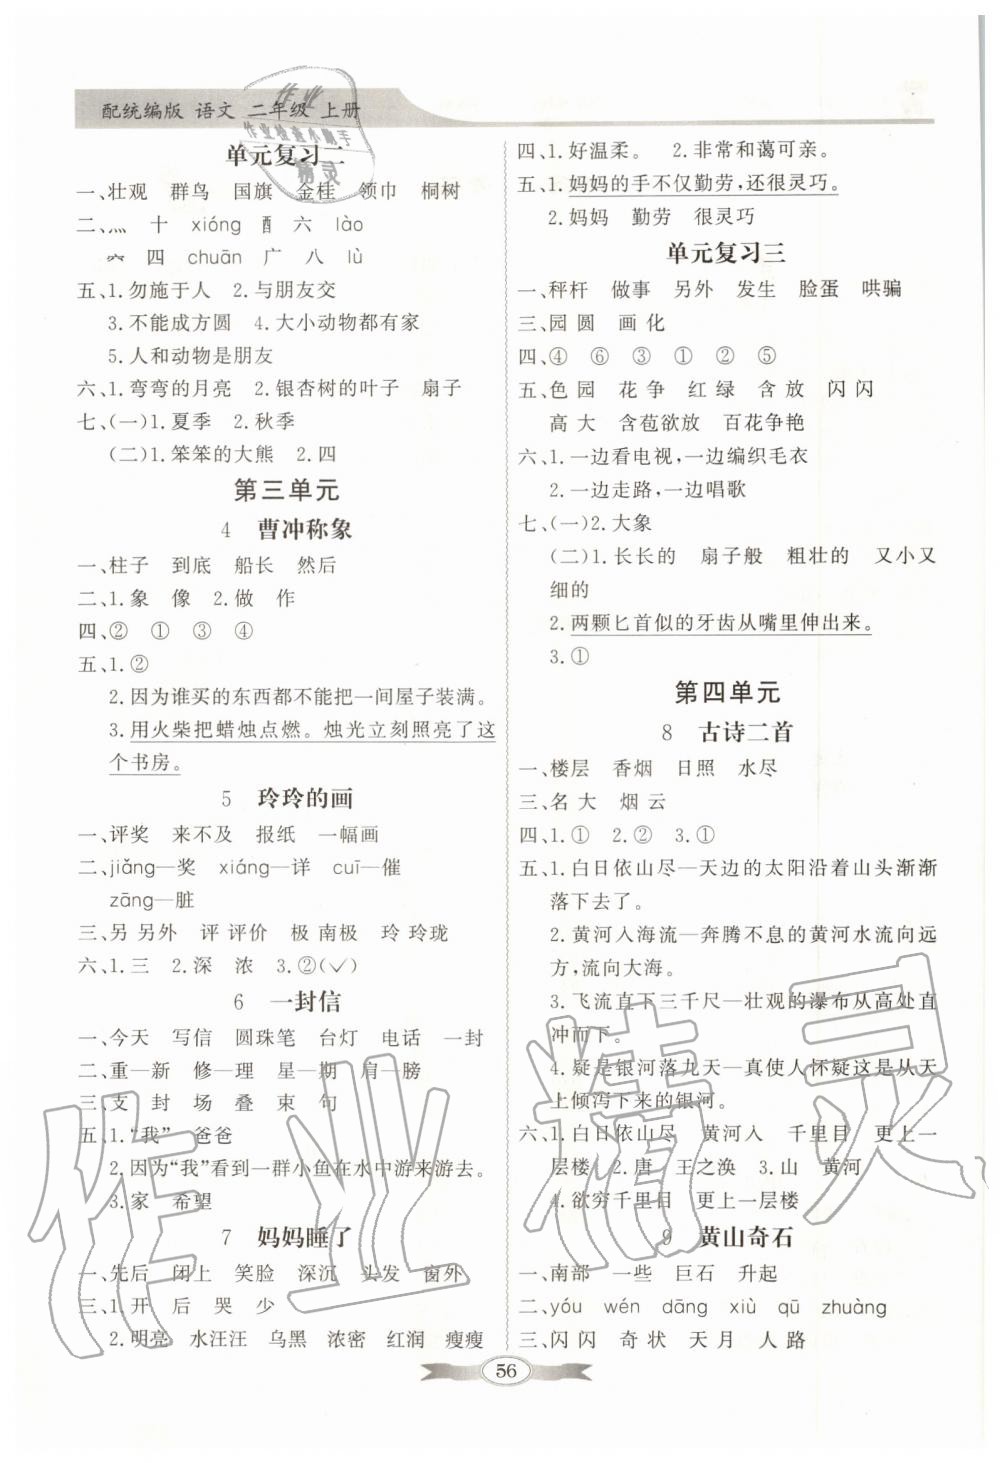 配统编版 语文 二年级 上册
作业
作业检查小助手
精灵
单元复习二
一、壮观 群鸟 国旗 金桂 领巾 桐树
二、灬 十 xióng 酉 六 lào
四 chuān 广 八 lù
五、1.勿施于人 2.与朋友交
3.不能成方圆 4.大小动物都有家
5.人和动物是朋友
六、1.弯弯的月亮 2.银杏树的叶子 扇子
七、(一)1.夏季 2.秋季
(二)1.笨笨的大熊 2.四
第三单元
4 曹冲称象
一、柱子 到底 船长 然后
二、1.象 像 2.做 作
四、② ① ③ ④
五、1.②
2.因为谁买的东西都不能把一间屋子装满。
3.用火柴把蜡烛点燃。烛光立刻照亮了这
个书房。
5 玲玲的画
一、评奖 来不及 报纸 一幅画
二、jiǎng—奖 xiáng—详 cuī—催
zāng—脏
三、另 另外 评 评价 极 南极 玲 玲珑
六、1.三 2.深 浓 3.②(✓)
6 一封信
一、今天 写信 圆珠笔 台灯 电话 一封
二、重—新 修—理 星—期 肩—膀
三、支 封 场 叠 束 句
五、1.“我” 爸爸
2.因为“我”看到一群小鱼在水中游来游去。
3.家 希望
7 妈妈睡了
一、先后 闭上 笑脸 深沉 头发 窗外
三、1.开 后 哭 少
2.明亮 水汪汪 乌黑 浓密 红润 瘦瘦
四、1.好温柔。 2.非常和蔼可亲。
五、1.妈妈的手不仅勤劳,还很灵巧。
2.妈妈 勤劳 很灵巧
单元复习三
一、秤杆 做事 另外 发生 脸蛋 哄骗
三、园 圆 画 化
四、④ ⑥ ③ ① ② ⑤
五、色 园 花 争 红 绿 含 放 闪 闪
高 大 含苞欲放 百花争艳
六、1.一边看电视,一边编织毛衣
2.一边走路,一边唱歌
七、(一)2.大象
(二)1.长长的 扇子般 粗壮的 又小又
细的
2.两颗匕首似的牙齿从嘴里伸出来。
3.①
第四单元
8 古诗二首
一、楼层 香烟 日照 水尽
三、名 大 烟 云
四、1.① 2.② 3.①
五、1.白日依山尽—天边的太阳沿着山头渐渐
落下去了。
2.黄河入海流—奔腾不息的黄河水流向远
方,流向大海。
3.飞流直下三千尺—壮观的瀑布从高处直
冲而下。
4.疑是银河落九天—真使人怀疑这是从天
上倾泻下来的银河。
六、1.白日依山尽 黄河入 千里目 更上一
层楼 2.唐 王之涣 3.山 黄河
4.欲穷千里目 更上一层楼
9 黄山奇石
一、南部 一些 巨石 升起
二、yóu wén dāng xiù qū zhuàng
三、闪 闪 奇 状 天 月 人 路
56
作业精灵